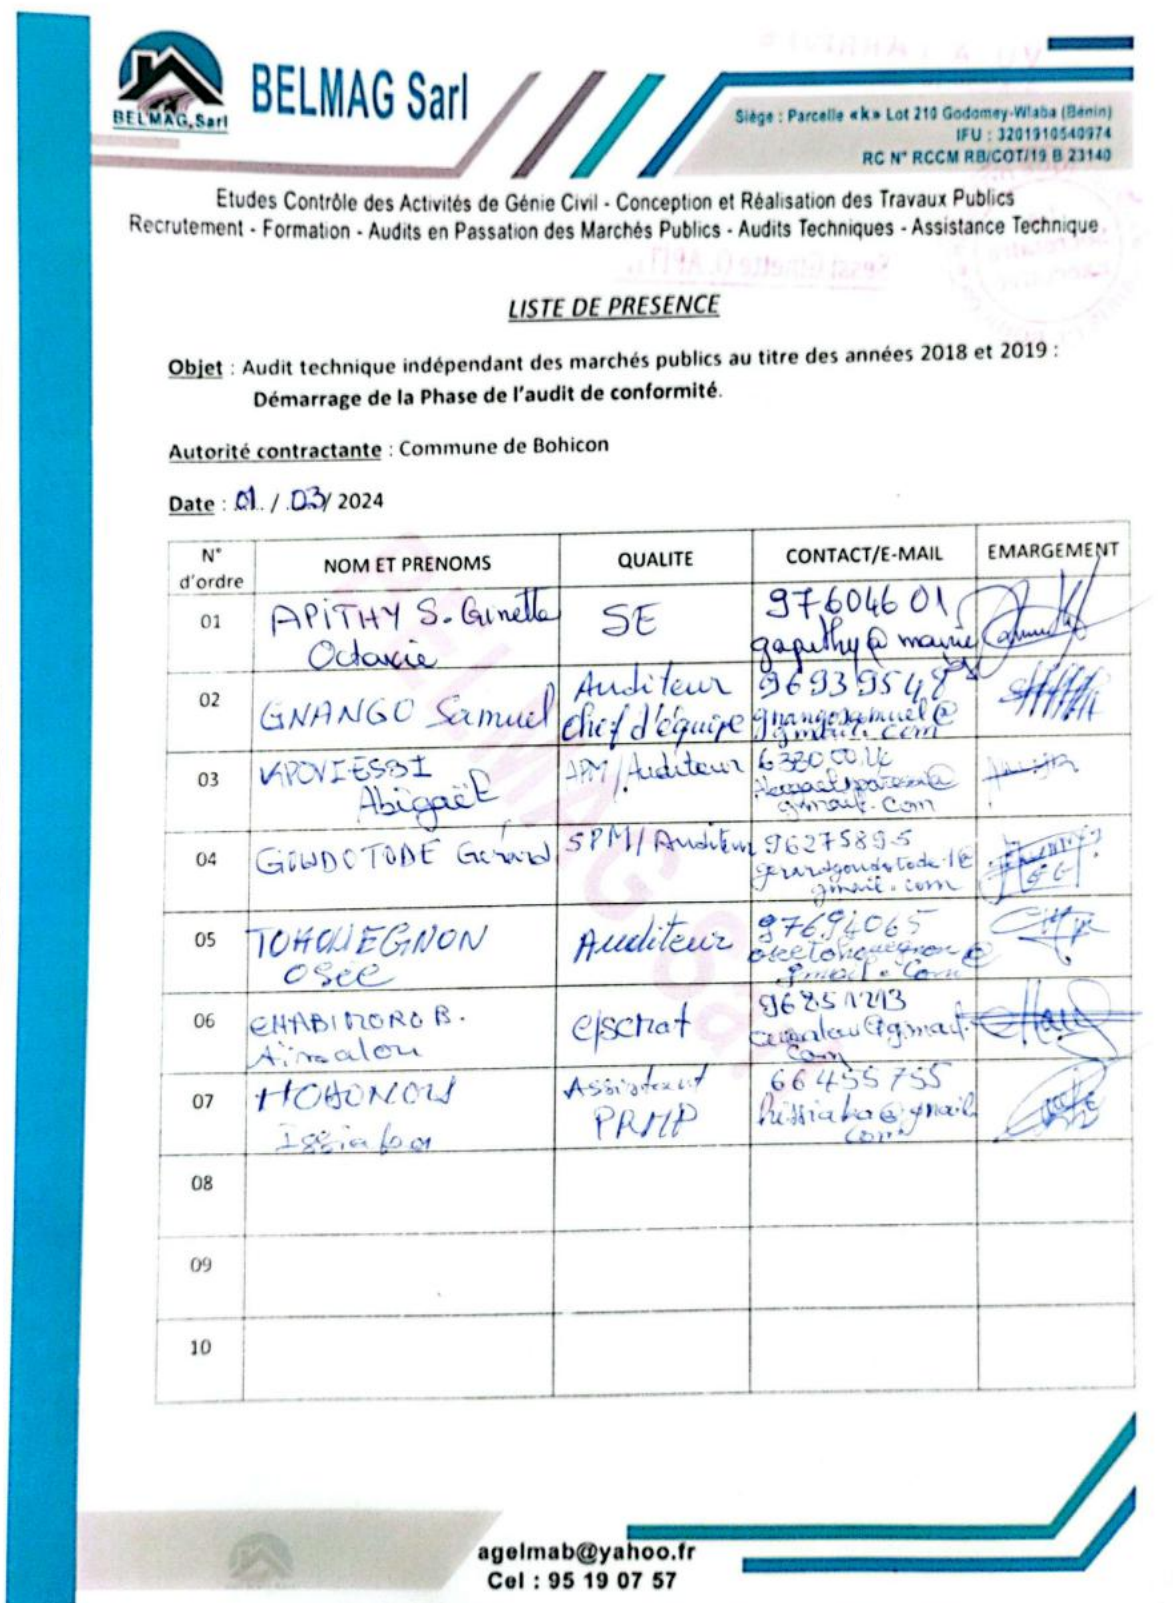 BELMAG Sarl
BELMAG Sarl
Siège : Parcelle «k» Lot 210 Godomey-Wlaba (Bénin)
IFU : 3201910540974
RC N° RCCM RB/COT/19 B 23140
Etudes Contrôle des Activités de Génie Civil - Conception et Réalisation des Travaux Publics
Recrutement - Formation - Audits en Passation des Marchés Publics - Audits Techniques - Assistance Technique
LISTE DE PRESENCE
Objet : Audit technique indépendant des marchés publics au titre des années 2018 et 2019 :
Démarrage de la Phase de l'audit de conformité.
Autorité contractante : Commune de Bohicon
Date : 01 / 03 / 2024
N° d'ordre NOM ET PRENOMS QUALITE CONTACT/E-MAIL EMARGEMENT
01 APITHY S. Ginette SE 97604601
Octavie gapithy@mairie
02 GNANGO Samuel Auditeur 96939548
Chef d'équipe gnangosamuel@
gmail.com
03 Abigaël APM/Auditeur
gmail.com
04 Gérard SPM/Auditeur 96275895
gmail.com
05 TOHOUEGNON Auditeur 97694065
Osée gmail.com
06 CHABI MORO B. 96851213
07 Assistant 66455755
PRMP
08
09
10
agelmab@yahoo.fr
Cel : 95 19 07 57